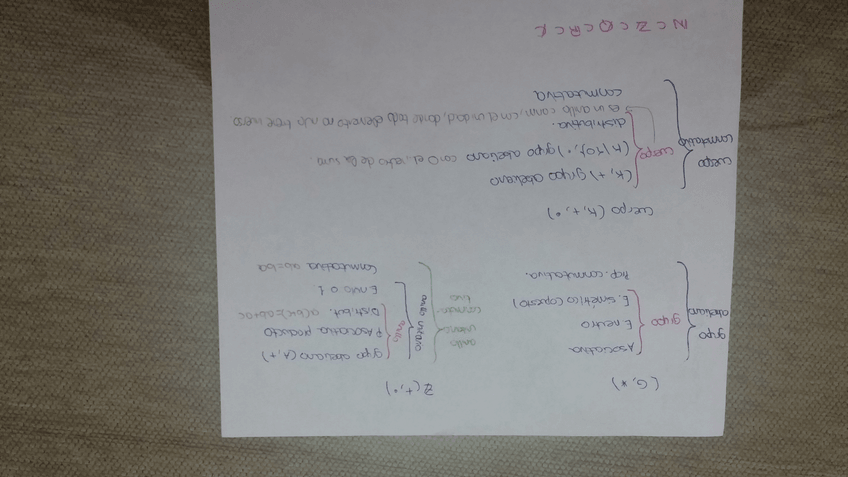 (G, *)
Asociativa
E. neutro
E. simétrico (opuesto)
grupo
Prop. conmutativa.
grupo
abeliano
Z (+, •)
grupo abeliano (A, +)
P. Asociativa producto
Distribut. a(b+c)=ab+ac
anillo
E. neutro 1
anillo unitario
Conmutativa ab=ba
anillo
unitario
conmuta-
tivo
Cuerpo (K, +, •)
(K, +) grupo abeliano
(K\{0}, •) grupo abeliano con 0 el. neutro de la suma.
distributiva.
cuerpo
es un anillo conm, con el. unidad, donde todo elemento no nulo tiene inverso
conmutativa
cuerpo
conmutativo
N ⊂ Z ⊂ Q ⊂ R ⊂ C